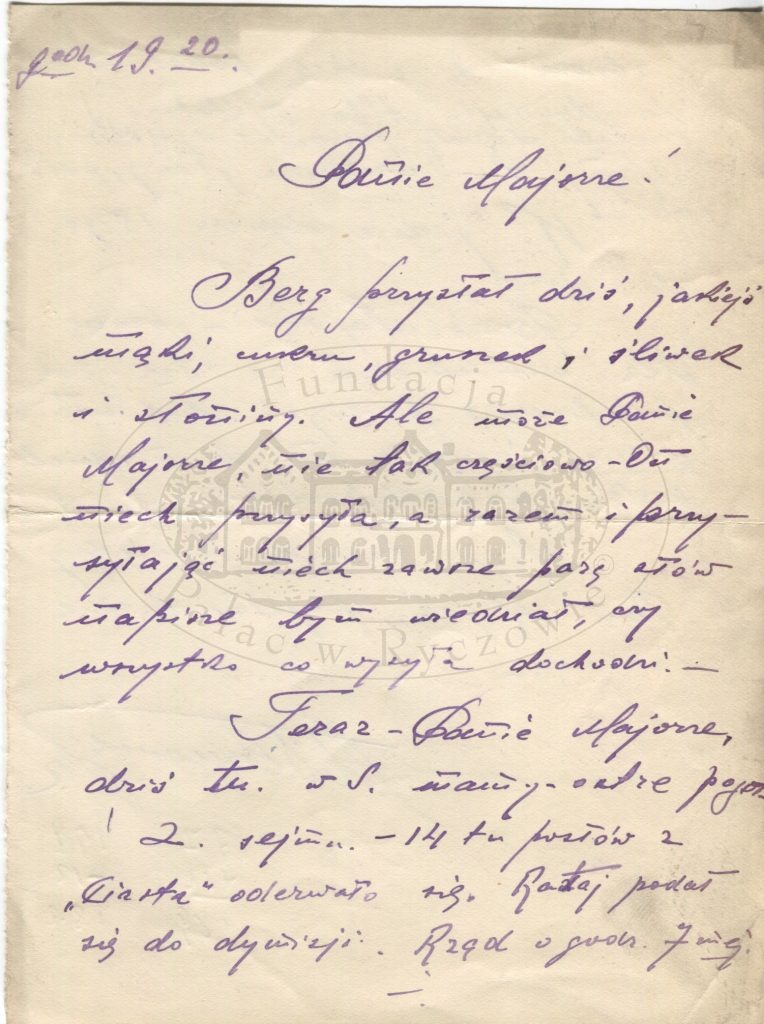 godz. 19.20.
Panie Majorze!
Berg przysłał dziś, jakiejś
mąki, cukru, gruszek, i śliwek
i słoniny. Ale może Panie
Majorze, nie tak częściowo - On
niech przysyła, a razem i przy-
syłając niech zawsze parę słów
napisze bym wiedział, czy
wszystko co wysyła dochodzi. -
Teraz - Panie Majorze,
dziś tu. w S. mamy - ostre
! 2. sejmu. - 14 tu posłów z
"Piasta" oderwało się. Rataj podał
się do dymisji. Rząd o godz. 7mej.
- .
Fundacja
Pałac w Ryczowie